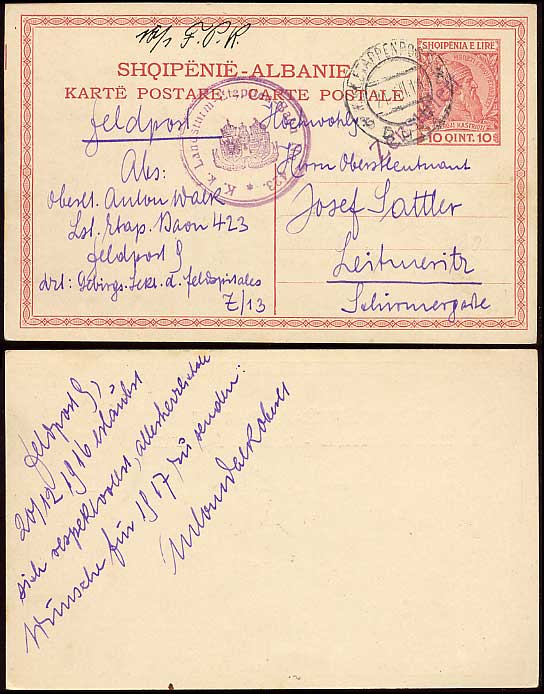 F.P.R.
SHQIPËNIË-ALBANIE
KARTË POSTARE - CARTE POSTALE
SHQIPENIA E LIRE
10 QINT. 10
K.u.K. ETAPPENPOST
K. k. Landsturm Etapp 423.
Feldpost
Hochwohlg.
Abs:
Oberlt. Anton Walk
Lst. Etap. Baon 423
Feldpost 9
dzt: Gebirgs. Sekt. d. Feldspitales
Z/13
Herrn Oberstleutnant
Josef Sattler
Leitmeritz
Schirmergasse
Feldpost 9,
20/12 1916 erlaubt
sich respektvollst, allerherzlichste
Wünsche für 1917 zu senden:
Anton Walk Oberlt